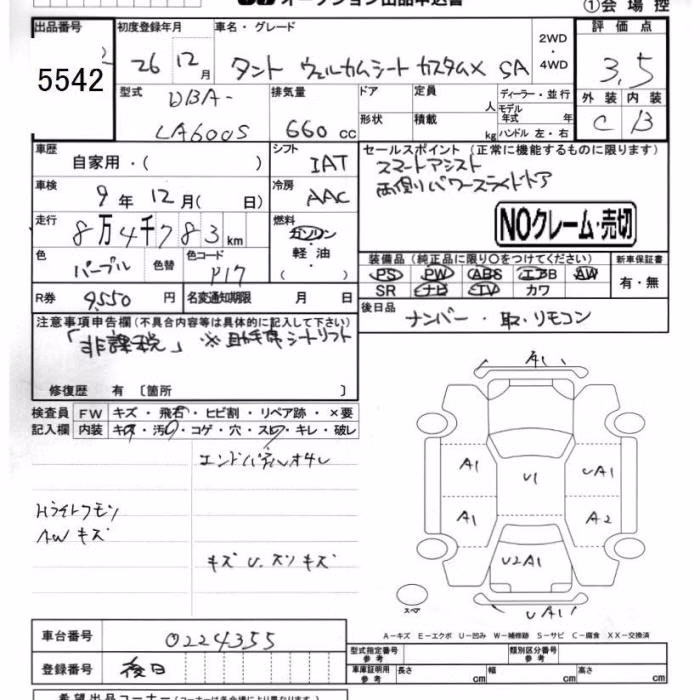 オークション出品申込書
①会場控
出品番号 初度登録年月 車名・グレード 2WD・4WD 評価点
5542 26 12月 タント ウェルカムシート カスタムX SA 3,5
型式 DBA- LA600S 排気量 660 cc ドア 定員 人 ディーラー・並行 外装 内装
形状 積載 kg モデル年式 年式 ハンドル 左・右 C B
車歴 自家用・( ) シフト IAT セールスポイント (正常に機能するものに限ります)
スマートアシスト
車検 9年12月( 日) 冷房 AAC 両側パワースライドドア
走行 8万4千783km 燃料 ガソリン・軽油・( ) NOクレーム・売切
色 パープル 色替 色コード P17 装備品 (純正品に限り○をつけてください) 新車保証書
PS PW ABS エアB AW 有・無
SR ナビ TV カワ
R券 9,550円 名変通知期限 月 日 後日品 ナンバー・取・リモコン
注意事項申告欄(不具合内容等は具体的に記入して下さい)
「非課税」 ※助手席シートリフト
修復歴 有 〔箇所 〕
検査員記入欄 FW キズ・飛石・ヒビ割・リペア跡・×要
内装 キズ・汚れ・コゲ・穴・スレ・キレ・破レ
Hライトクモリ
AW キズ
キズ U.スリキズ
A1
A1 U1 UA1
A1 A2
U2A1
スペア
UA1
A-キズ E-エクボ U-凹み W-補修跡 S-サビ C-腐食 XX-交換済
車台番号 0224355
型式指定番号 参考 類別区分番号 参考
登録番号 後日 車庫証明用 参考 長さ cm 幅 cm 高さ cm
希望出品コーナー